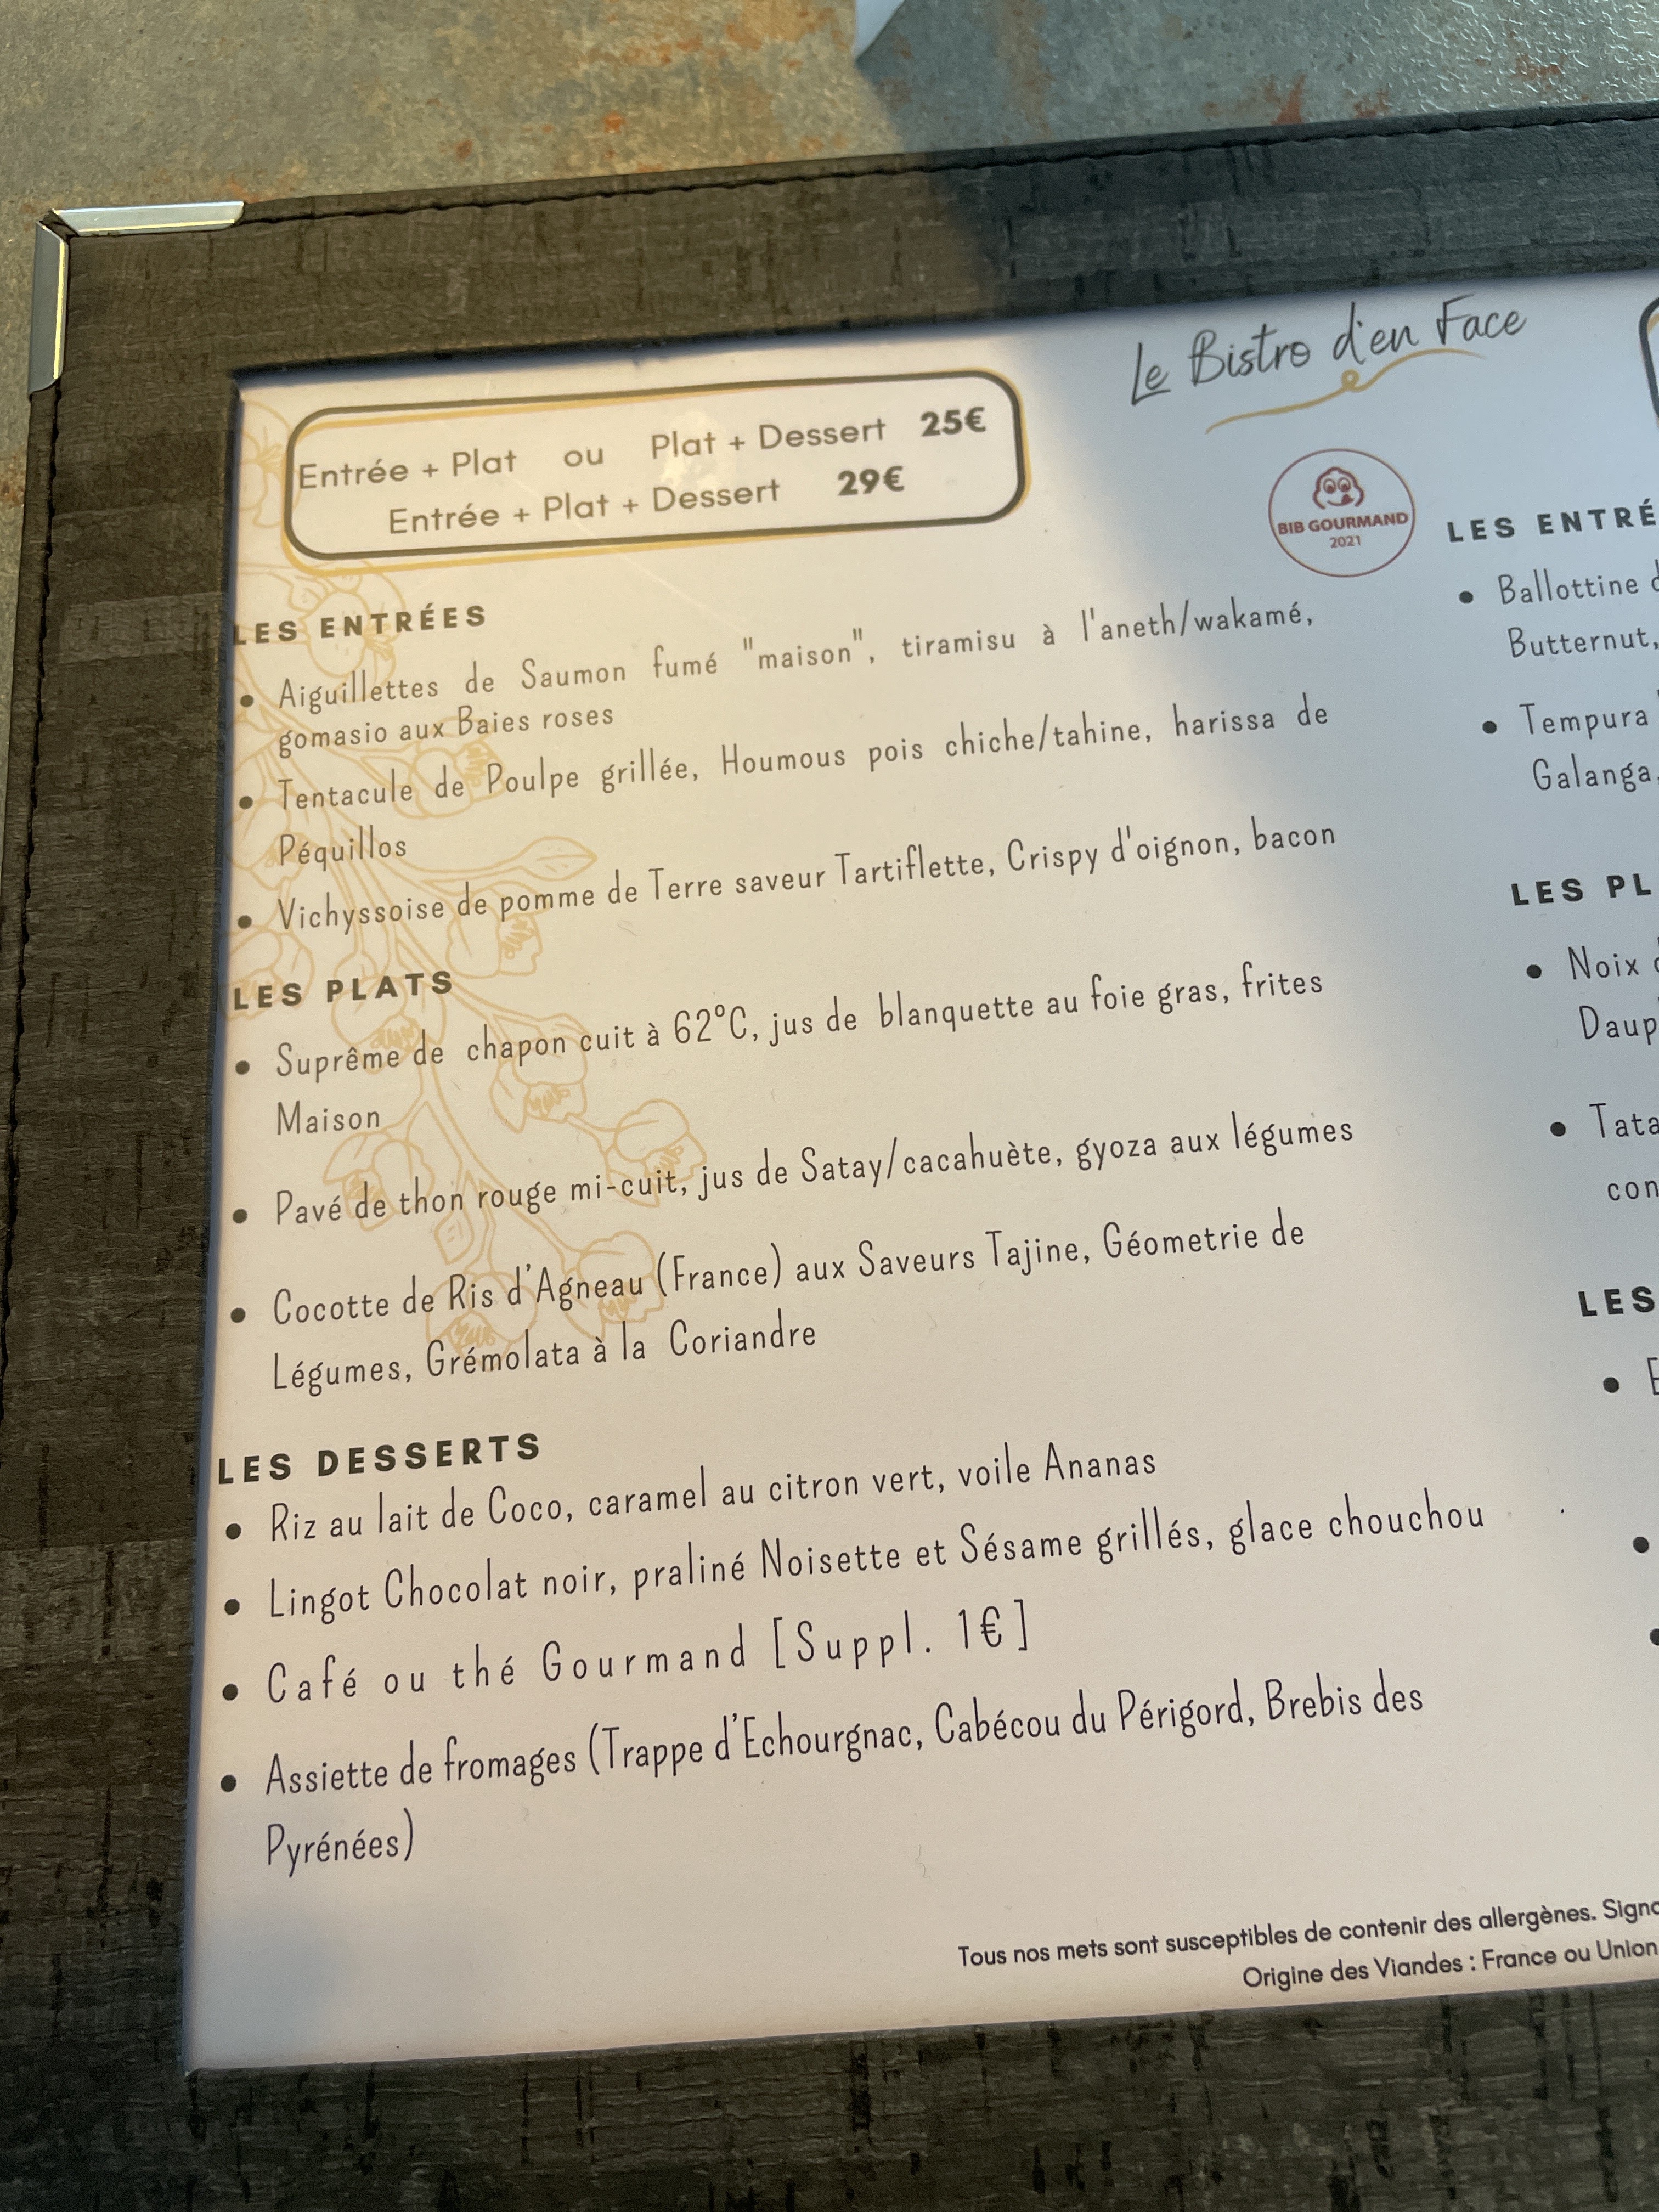 Le Bistro d'en Face
Entrée + Plat ou Plat + Dessert 25€
Entrée + Plat + Dessert 29€
BIB GOURMAND
2021
LES ENTRÉES
• Aiguillettes de Saumon fumé "maison", tiramisu à l'aneth/wakamé,
gomasio aux Baies roses
• Tentacule de Poulpe grillée, Houmous pois chiche/tahine, harissa de
Péquillos
• Vichyssoise de pomme de Terre saveur Tartiflette, Crispy d'oignon, bacon
LES PLATS
• Suprême de chapon cuit à 62°C, jus de blanquette au foie gras, frites
Maison
• Pavé de thon rouge mi-cuit, jus de Satay/cacahuète, gyoza aux légumes
• Cocotte de Ris d'Agneau (France) aux Saveurs Tajine, Géometrie de
Légumes, Grémolata à la Coriandre
LES DESSERTS
• Riz au lait de Coco, caramel au citron vert, voile Ananas
• Lingot Chocolat noir, praliné Noisette et Sésame grillés, glace chouchou
• Café ou thé Gourmand [Suppl. 1€]
• Assiette de fromages (Trappe d'Echourgnac, Cabécou du Périgord, Brebis des
Pyrénées)
LES ENTRÉ
• Ballottine
Butternut,
• Tempura
Galanga,
LES PL
• Noix
Daup
• Tata
con
LES
Tous nos mets sont susceptibles de contenir des allergènes.
Origine des Viandes : France ou Union